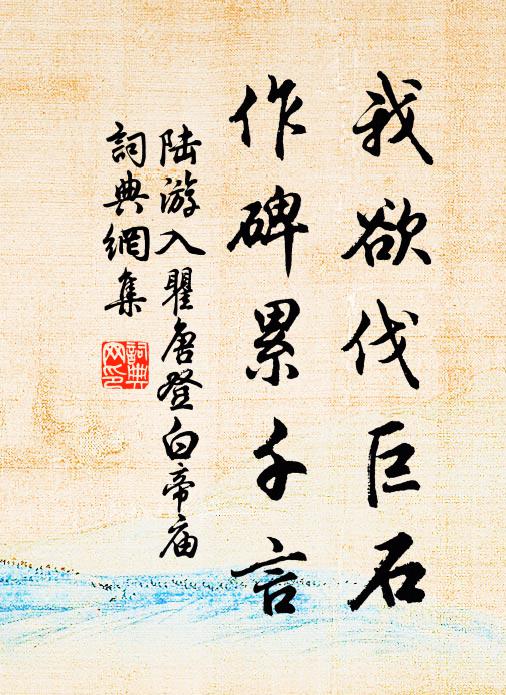 我欲伐巨石
作碑累千言
陆游入瞿唐登白帝庙
詞典網集
詞典网印